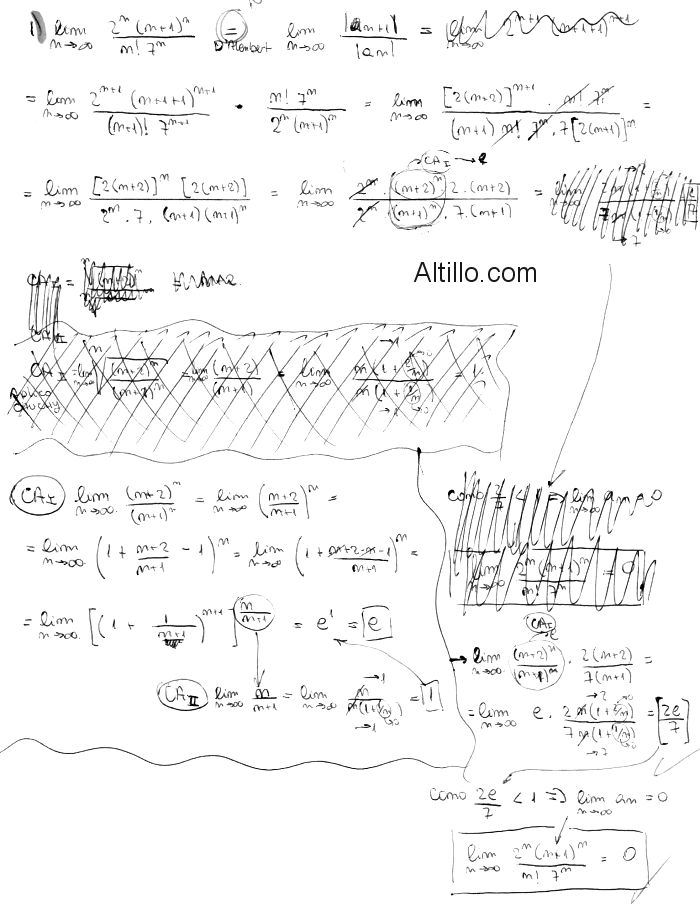 1) lim n→∞ 2^n (n+1)^n / n! 7^n = D'Alembert lim n→∞ |an+1| / |an| =
= lim n→∞ 2^(n+1) (n+1+1)^(n+1) / (n+1)! 7^(n+1) · n! 7^n / 2^n (n+1)^n = lim n→∞ [2(n+2)]^(n+1) · n! 7^n / (n+1) n! 7^n · 7 [2(n+1)]^n =
= lim n→∞ [2(n+2)]^n [2(n+2)] / 2^n · 7 · (n+1) (n+1)^n = lim n→∞ 2^n · (n+2)^n · 2 · (n+2) / 2^n · (n+1)^n · 7 · (n+1) =
CA I → e
Altillo.com
CA I = lim n→∞ (n+2)^n / (n+1)^n = lim n→∞ (n+2) / (n+1) = lim n→∞ n(1+2/n) / n(1+1/n) = 1
CA I lim n→∞ (n+2)^n / (n+1)^n = lim n→∞ (n+2 / n+1)^n =
= lim n→∞ (1 + n+2 / n+1 - 1)^n = lim n→∞ (1 + n+2-n-1 / n+1)^n =
= lim n→∞ [(1 + 1 / n+1)^(n+1)]^(n / n+1) = e^1 = e
CA II lim n→∞ n / n+1 = lim n→∞ n / n(1+1/n) = 1
como 2/7 < 1 ⇒ lim n→∞ an = 0
lim n→∞ 2^n (n+1)^n / n! 7^n = 0
CA I e
→ lim n→∞ (n+2)^n / (n+1)^n · 2(n+2) / 7(n+1) =
= lim n→∞ e · 2 n(1+2/n) / 7 n(1+1/n) = 2e / 7
como 2e / 7 < 1 ⇒ lim n→∞ an = 0
lim n→∞ 2^n (n+1)^n / n! 7^n = 0